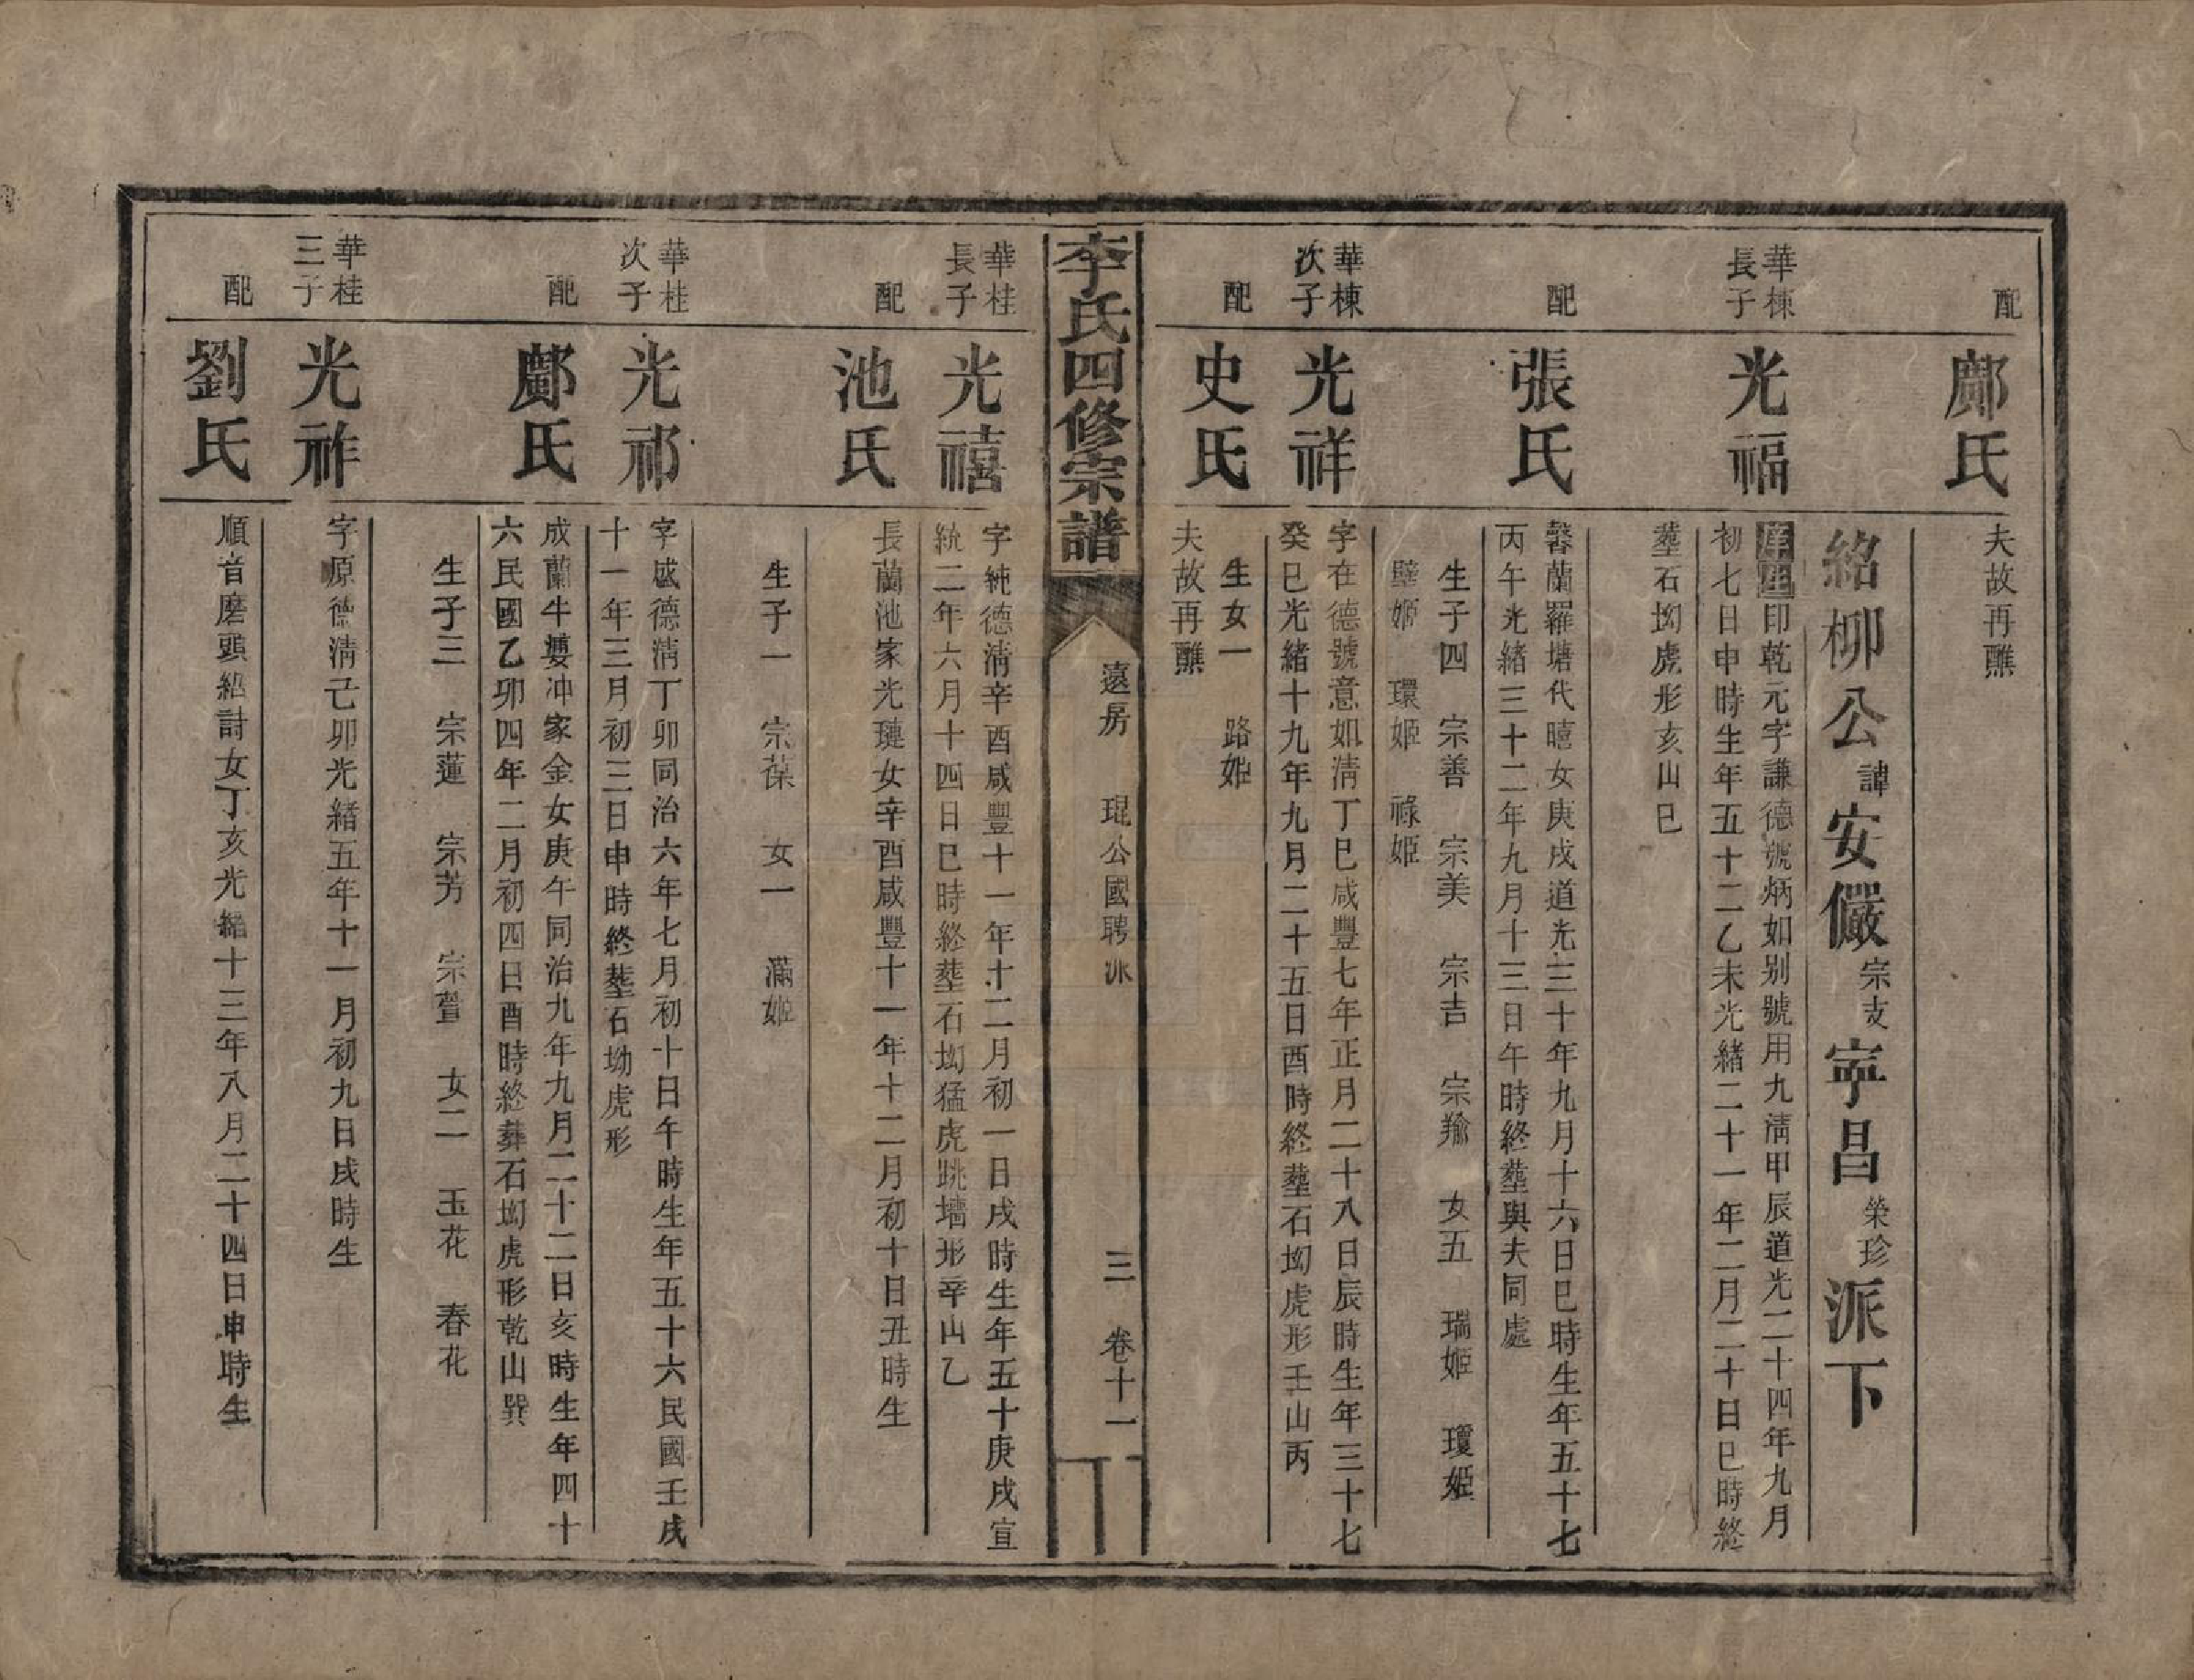 配
鄺氏
夫故再醮
紹柳公諱安儼宗支寧昌榮珍派下
華棟
長子
光福
庠生印乾元字謙德號炳如别號用九淸甲辰道光二十四年九月
初七日申時生年五十二乙未光緖二十一年二月二十日巳時終
塟石坳虎形亥山巳
配
張氏
馨蘭羅塘代暿女庚戌道光三十年九月十六日巳時生年五十七
丙午光緖三十二年九月十三日午時終塟與夫同處
生子四　宗善　宗美　宗吉　宗羭　女五　瑞姬　瓊姬
璧姬　環姬　祿姬
華棟
次子
光祥
字在德號意如淸丁巳咸豐七年正月二十八日辰時生年三十七
癸巳光緖十九年九月二十五日酉時終塟石坳虎形壬山丙
配
史氏
生女一　路姬
夫故再醮
李氏四修宗譜
遠房　琨公國聘派
三　卷十一
華桂
長子
光禧
字純德淸辛酉咸豐十一年十二月初一日戌時生年五十庚戌宣
統二年六月十四日巳時終塟石坳猛虎跳墻形辛山乙
配
池氏
長蘭池家光璉女辛酉咸豐十一年十二月初十日丑時生
生子一　宗葆　女一　滿姬
華桂
次子
光祁
字盛德淸丁卯同治六年七月初十日午時生年五十六民國壬戌
十一年三月初三日申時終塟石坳虎形
配
鄺氏
成蘭牛婁冲家金女庚午同治九年九月二十二日亥時生年四十
六民國乙卯四年二月初四日酉時終葬石坳虎形乾山巽
生子三　宗蓮　宗芳　宗萱　女二　玉花　春花
華桂
三子
光祚
字原德淸己卯光緖五年十一月初九日戌時生
配
劉氏
順音磨頭紹詩女丁亥光緖十三年八月二十四日申時生